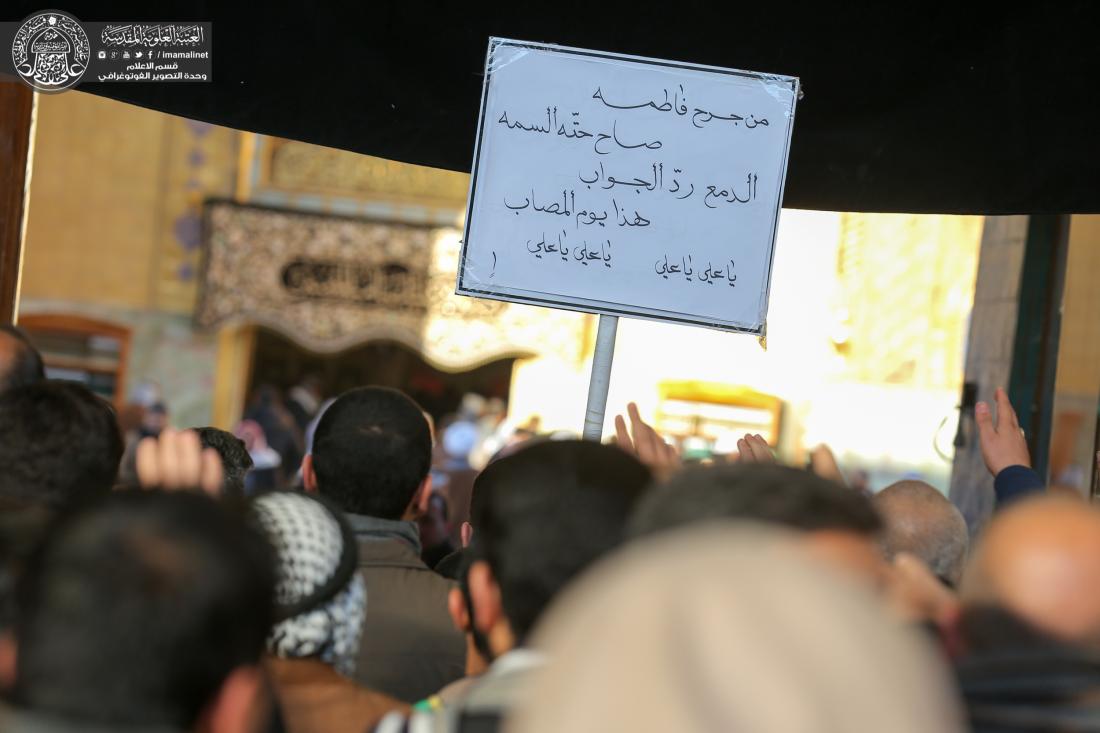 العتبة العلوية المقدسة
/ imamalinet
قسم الاعلام
وحدة التصوير الفوتوغرافي
من جرح فاطمه
صاح حتّه السمه
الدمع ردّ الجواب
هذا يوم المصاب
ياعلي ياعلي ياعلي ياعلي
١